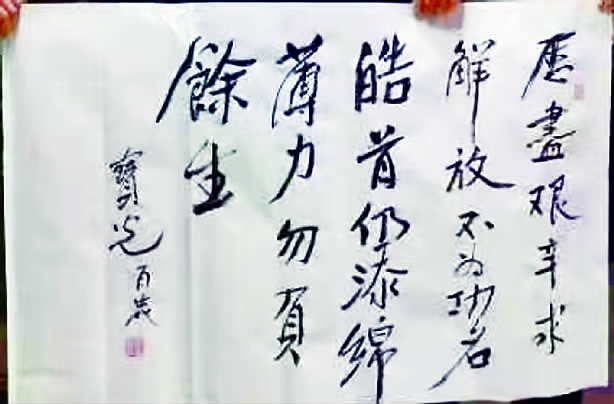 歷盡艰辛求
解放不为功名
皓首仍添綿
薄力勿負
餘生
寶光百歲